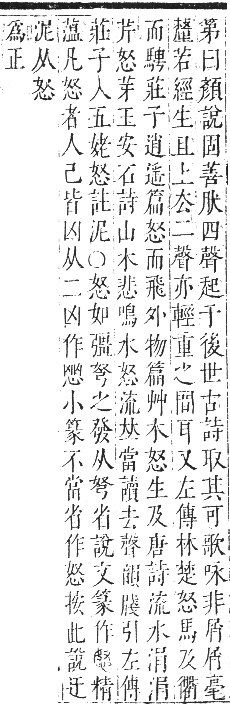 第曰顏說固善肰四聲起于後世古詩取其可歌咏非屑屑毫
釐若經生且上去二聲亦輕重之閒耳又左傳林楚怒馬及衢
而騁莊子逍遥篇怒而飛外物篇艸木怒生及唐詩流水涓涓
芹怒芽王安石詩山木悲鳴水怒流竝當讀去聲韻牋引左傳
莊子入五姥怒註泥○怒如彊弩之發从弩省說文篆作𢙼精
薀凡怒者人己皆凶从二凶作㦔小篆不當省作怒按此說迂
泥从怒
爲正